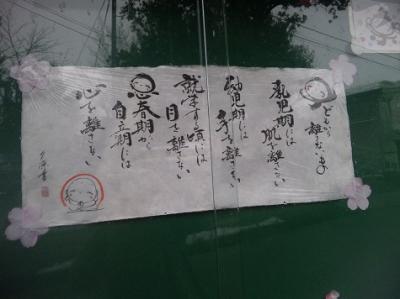 どんなに離れていても
乳児期には
肌を離さない
幼児期には
手を離さない
就学する頃には
目を離さない
思春期から
自立期には
心を離さない